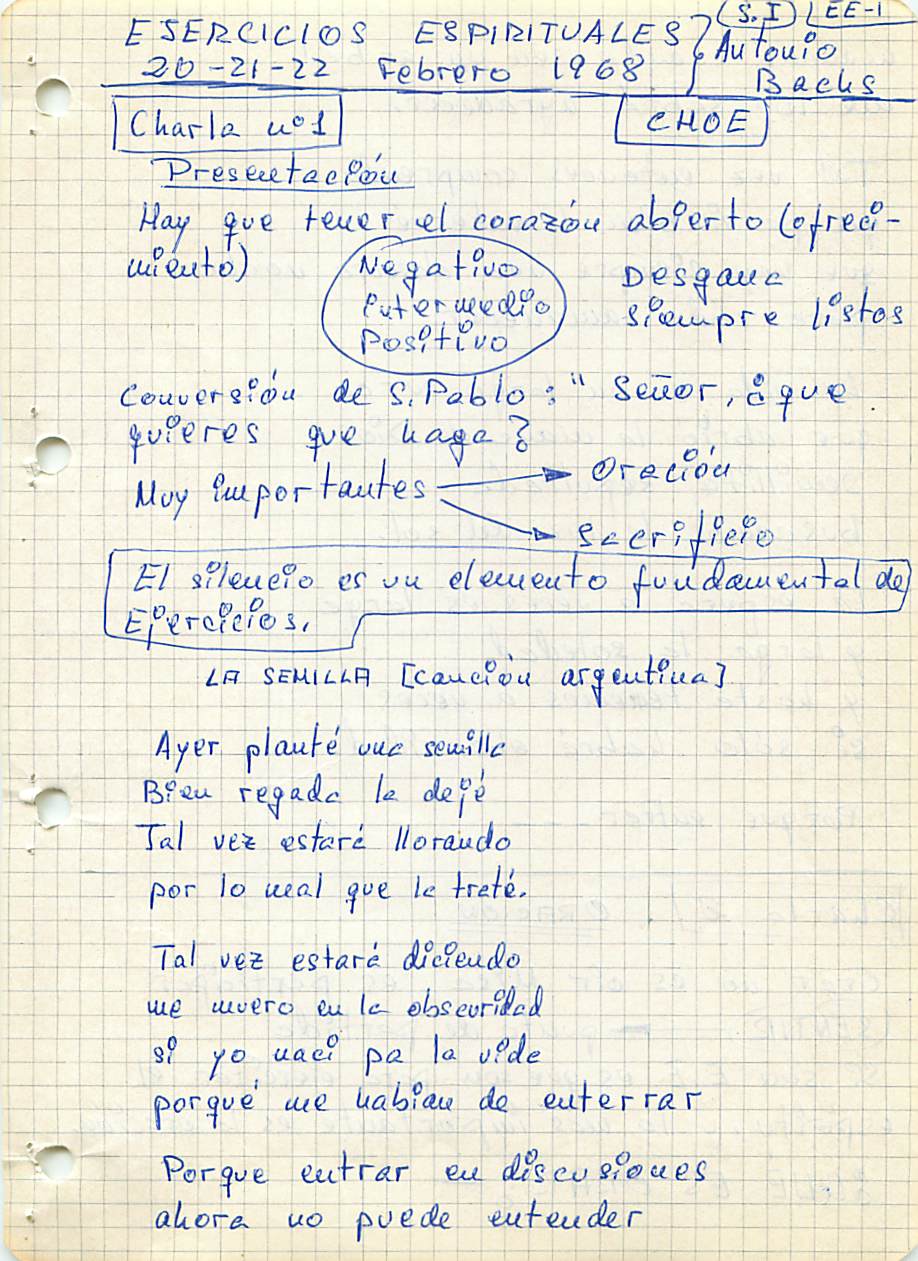 EJERCICIOS ESPIRITUALES (S.I) EE-1
20-21-22 Febrero 1968 Antonio Bachs
Charla nº1 CHOE
Presentación
Hay que tener el corazón abierto (ofreci-
miento) Negativo Desgana
Intermedio siempre listos
Positivo
Conversión de S. Pablo: " Señor, ¿que
quieres que haga?
Muy importantes Oración
Sacrificio
El silencio es un elemento fundamental de
Ejercicios.
LA SEMILLA [canción argentina]
Ayer planté una semilla
Bien regada la dejé
Tal vez estará llorando
por lo mal que la traté.
Tal vez estará diciendo
me muero en la obscuridad
si yo naci pa la vida
porqué me habian de enterrar
Porque entrar en discusiones
ahora no puede entender